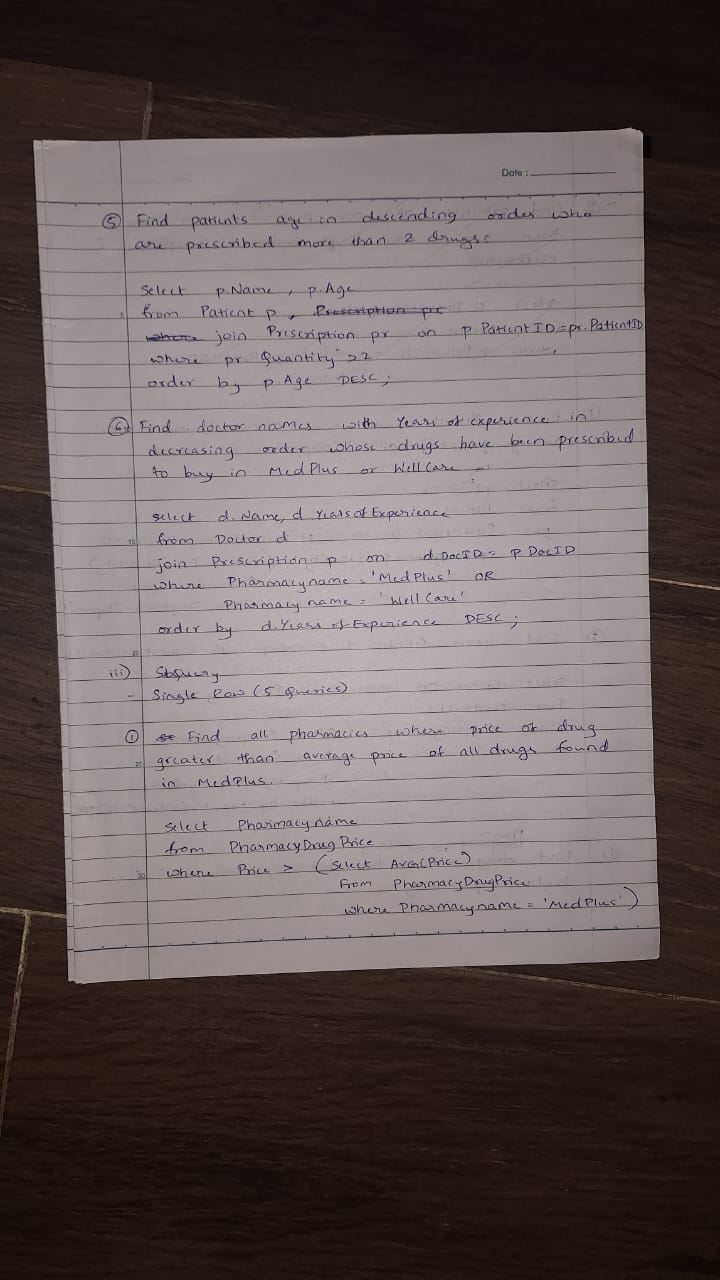 Date :
⑤ Find patients age in descending order who
are prescribed more than 2 drugs.
Select p.Name, p.Age
from Patient p, Prescription pr
where join Prescription pr on p.PatientID = pr.PatientID
where pr.Quantity > 2
order by p.Age DESC;
⑥ Find doctor names with Years of experience in
decreasing order whose drugs have been prescribed
to buy in MedPlus or WellCare
select d.Name, d.YearsofExperience
from Doctor d
join Prescription p on d.DocID = p.DocID
where Pharmacyname = 'MedPlus' OR
Pharmacyname = 'WellCare'
order by d.YearsofExperience DESC;
iii) Sbquery
- Single Row (5 Queries)
① Find all pharmacies where price of drug
greater than average price of all drugs found
in MedPlus.
Select Pharmacyname
from PharmacyDrugPrice
where Price > (Select AVG(Price)
From PharmacyDrugPrice
where Pharmacyname = 'MedPlus')